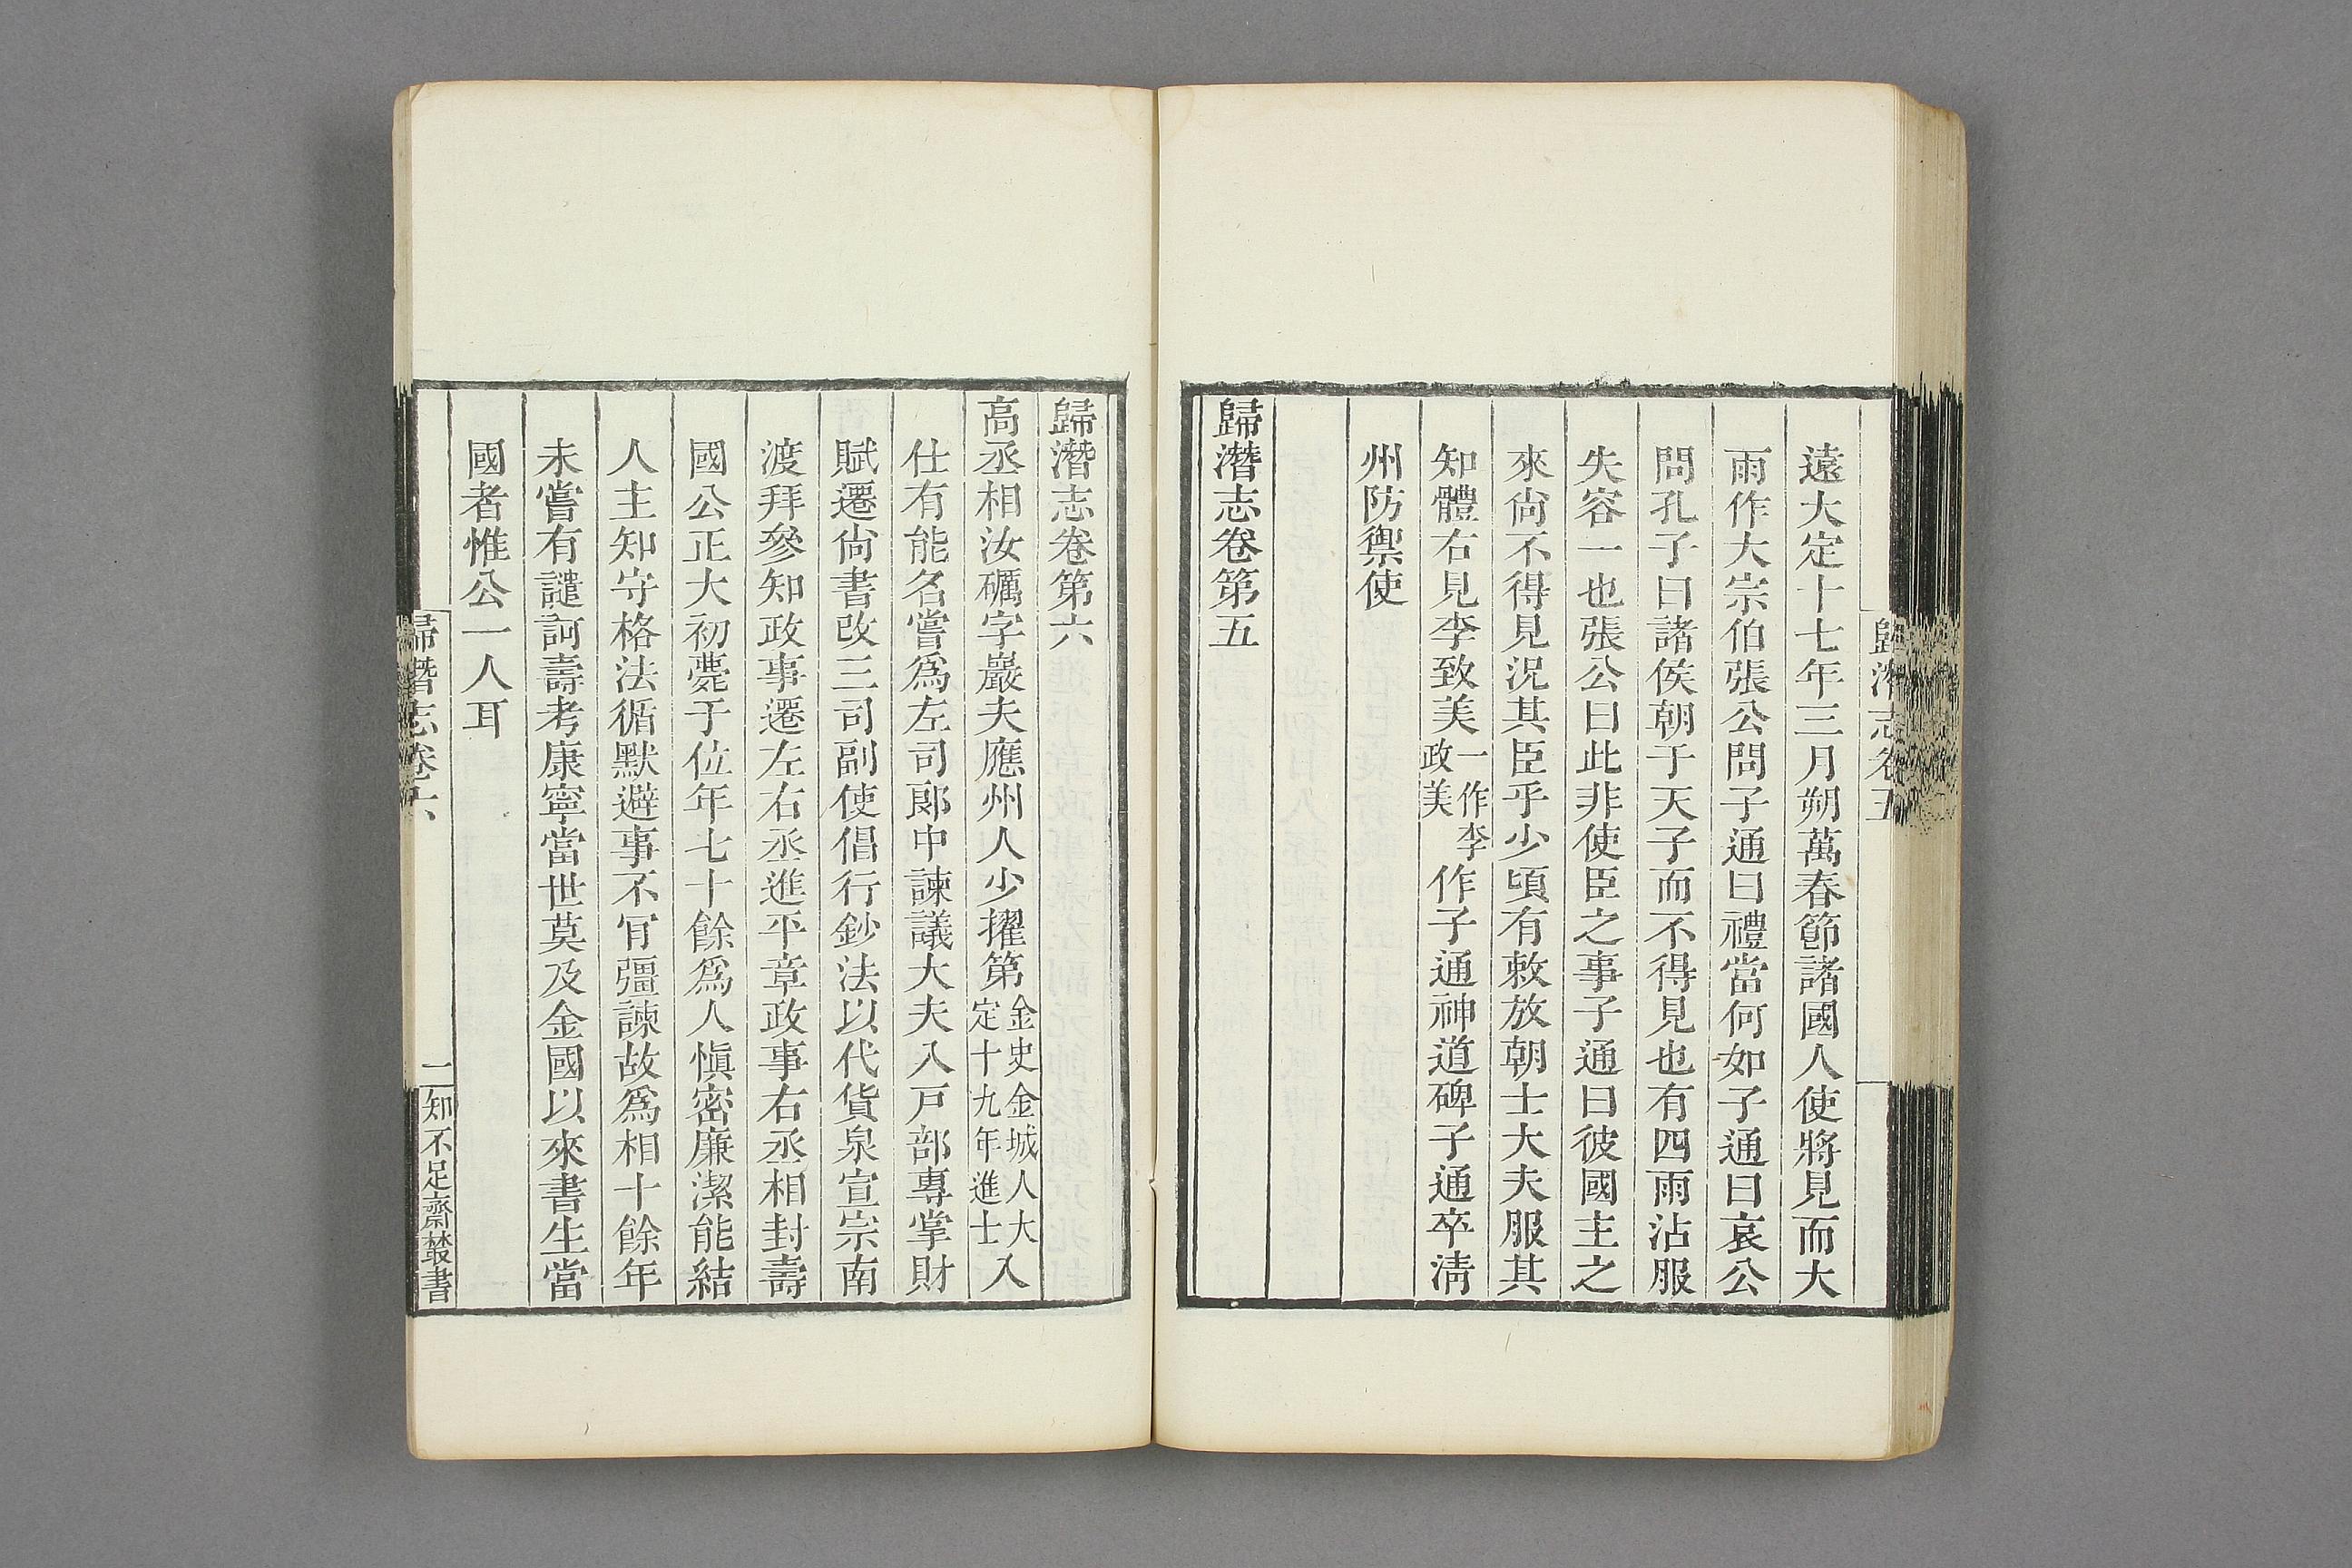 歸潛志卷五
遠大定十七年三月朔萬春節諸國人使將見而大
雨作大宗伯張公問子通曰禮當何如子通曰哀公
問孔子曰諸侯朝于天子而不得見也有四雨沾服
失容一也張公曰此非使臣之事子通曰彼國主之
來尙不得見況其臣乎少頃有敕放朝士大夫服其
知體右見李致美一作李政美作子通神道碑子通卒淸
州防禦使
歸潛志卷第五
歸潛志卷第六
高丞相汝礪字巖夫應州人少擢第金史金城人大定十九年進士入
仕有能名嘗爲左司郞中諫議大夫入戸部專掌財
賦遷尙書改三司副使倡行鈔法以代貨泉宣宗南
渡拜參知政事遷左右丞進平章政事右丞相封壽
國公正大初薨于位年七十餘爲人愼密廉潔能結
人主知守格法循默避事不肎彊諫故爲相十餘年
未嘗有譴訶壽考康寧當世莫及金國以來書生當
國者惟公一人耳
歸潛志卷六
一
知不足齋叢書